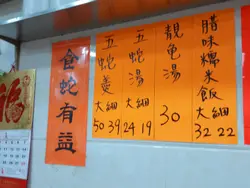 福
食蛇有益
五蛇羹
大細
50 39
五蛇湯
大細
24 19
靚亀湯
30
腊味糯米飯
大細
32 22